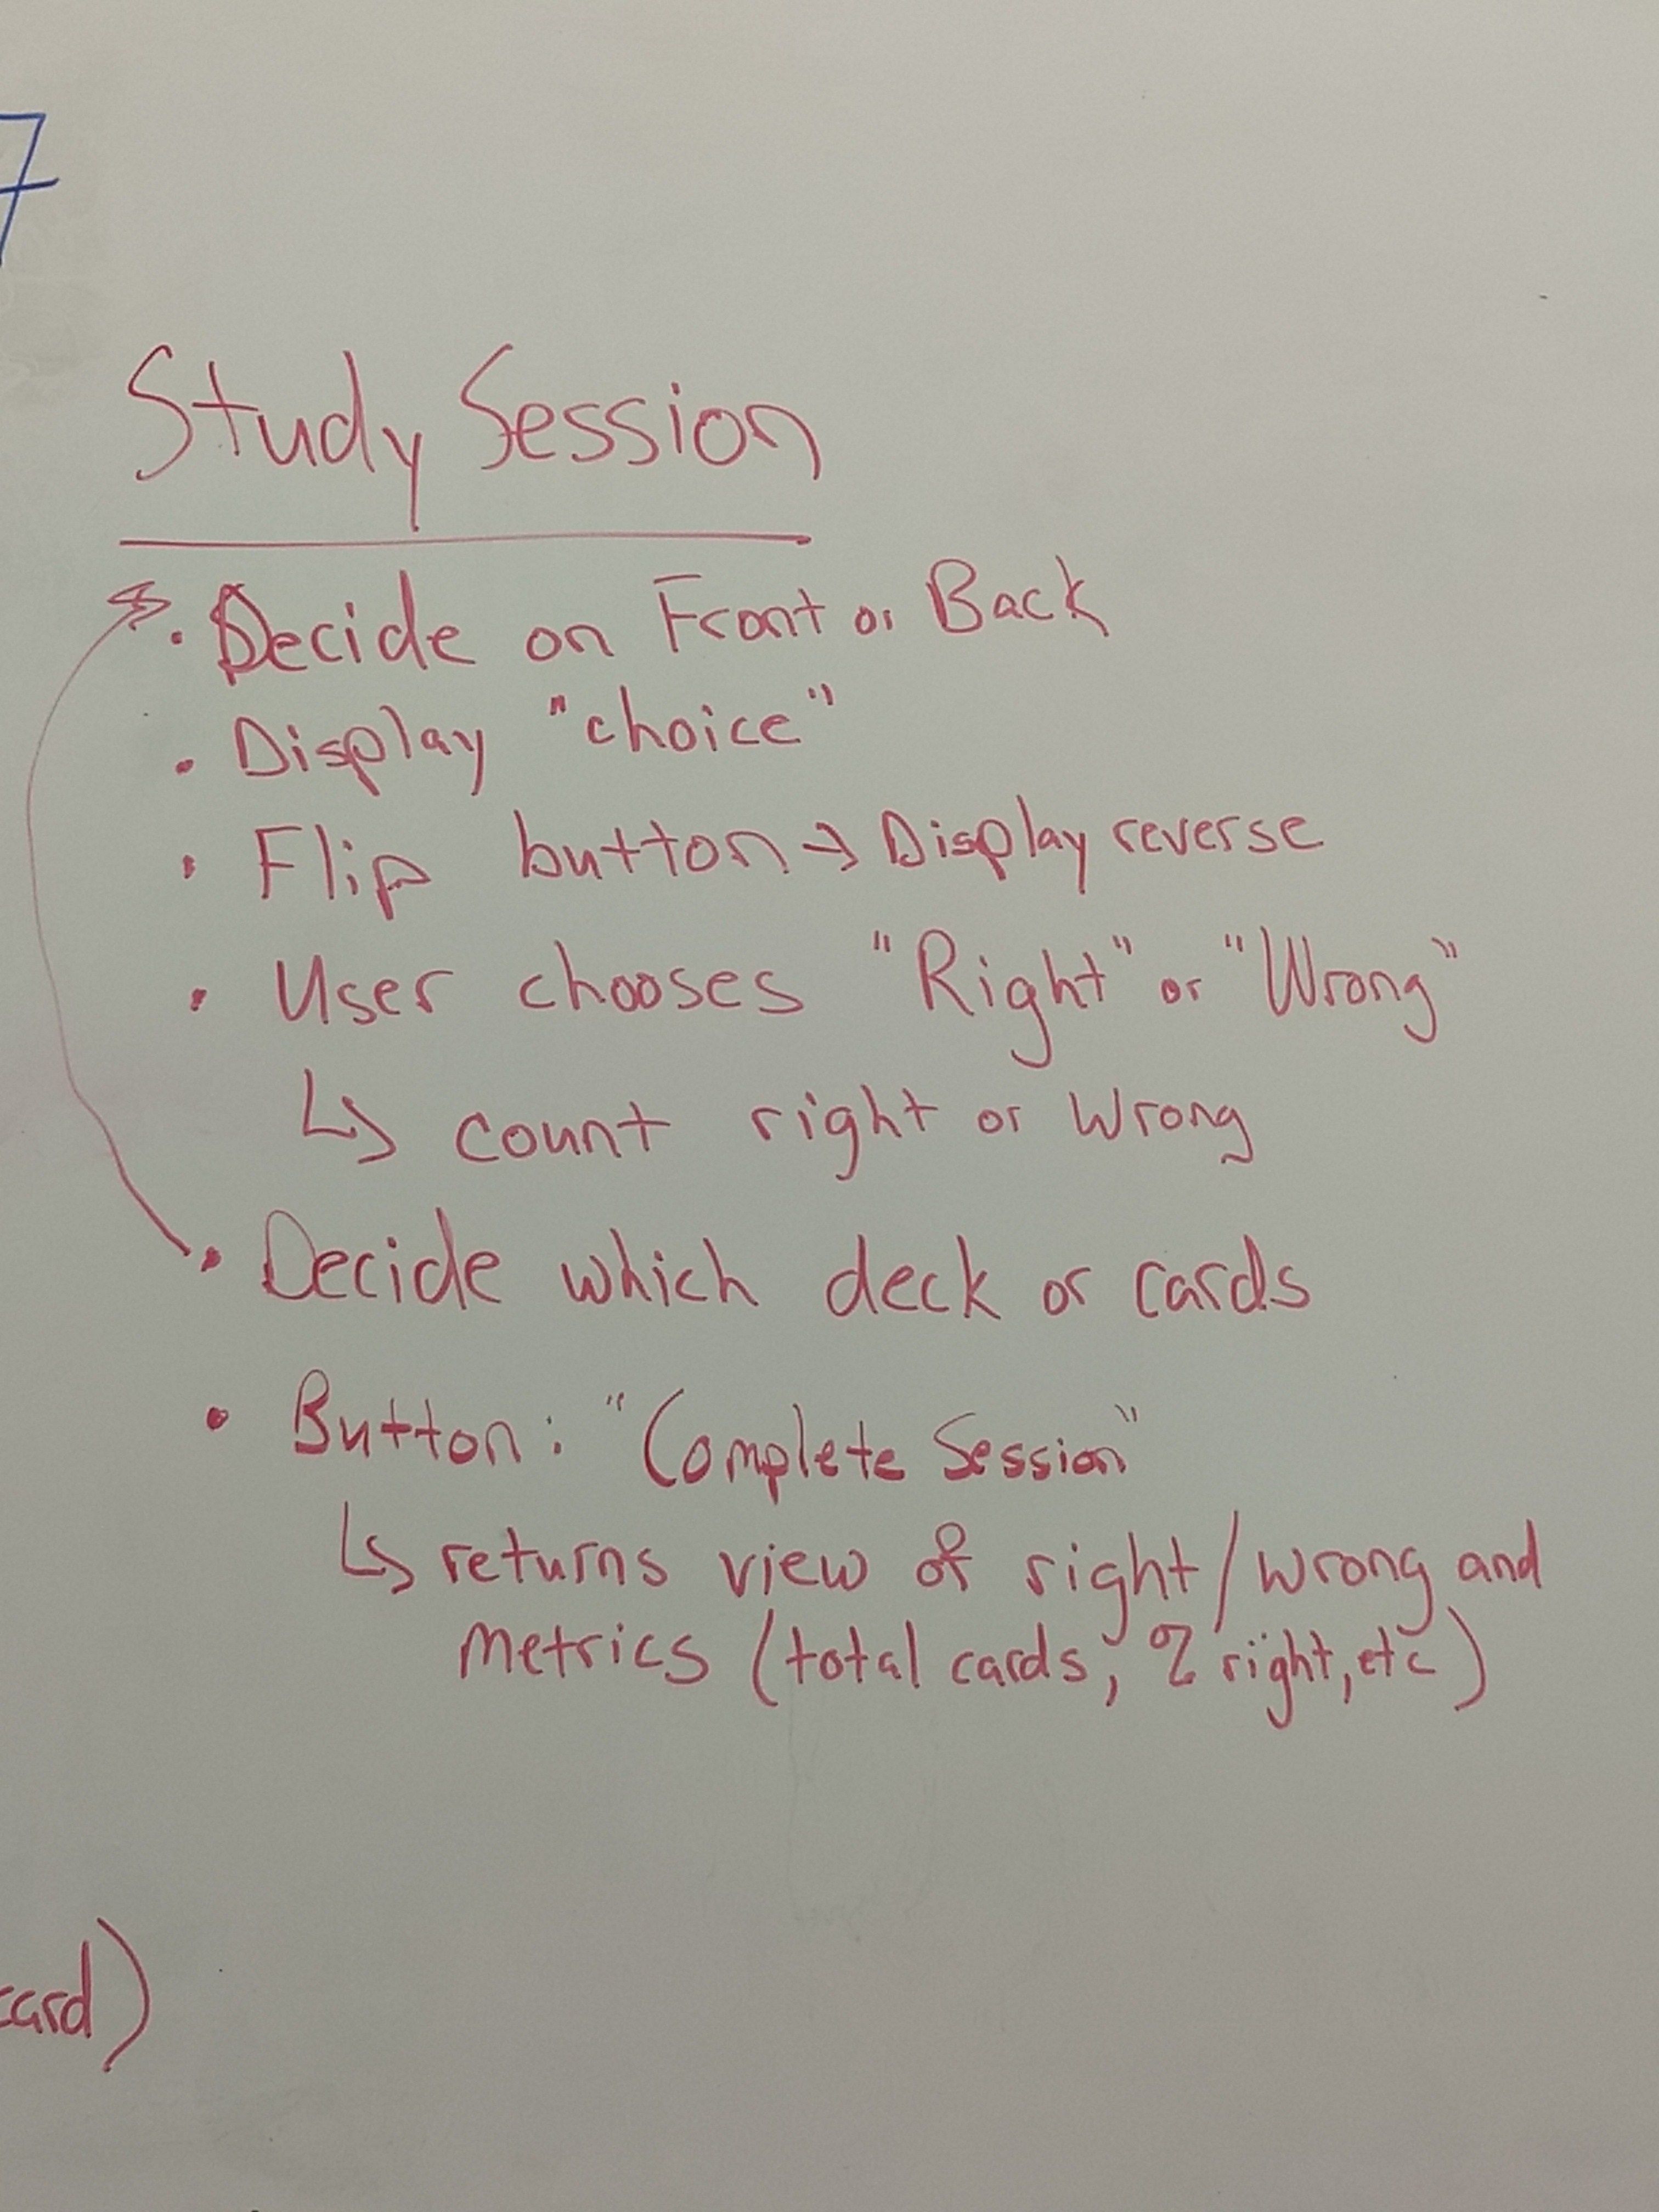 7
Study Session
• Decide on Front or Back
• Display "choice"
• Flip button → Display reverse
• User chooses "Right" or "Wrong"
↳ count right or wrong
• Decide which deck or cards
• Button: "Complete Session"
↳ returns view of right/wrong and
metrics (total cards, % right, etc)
card)